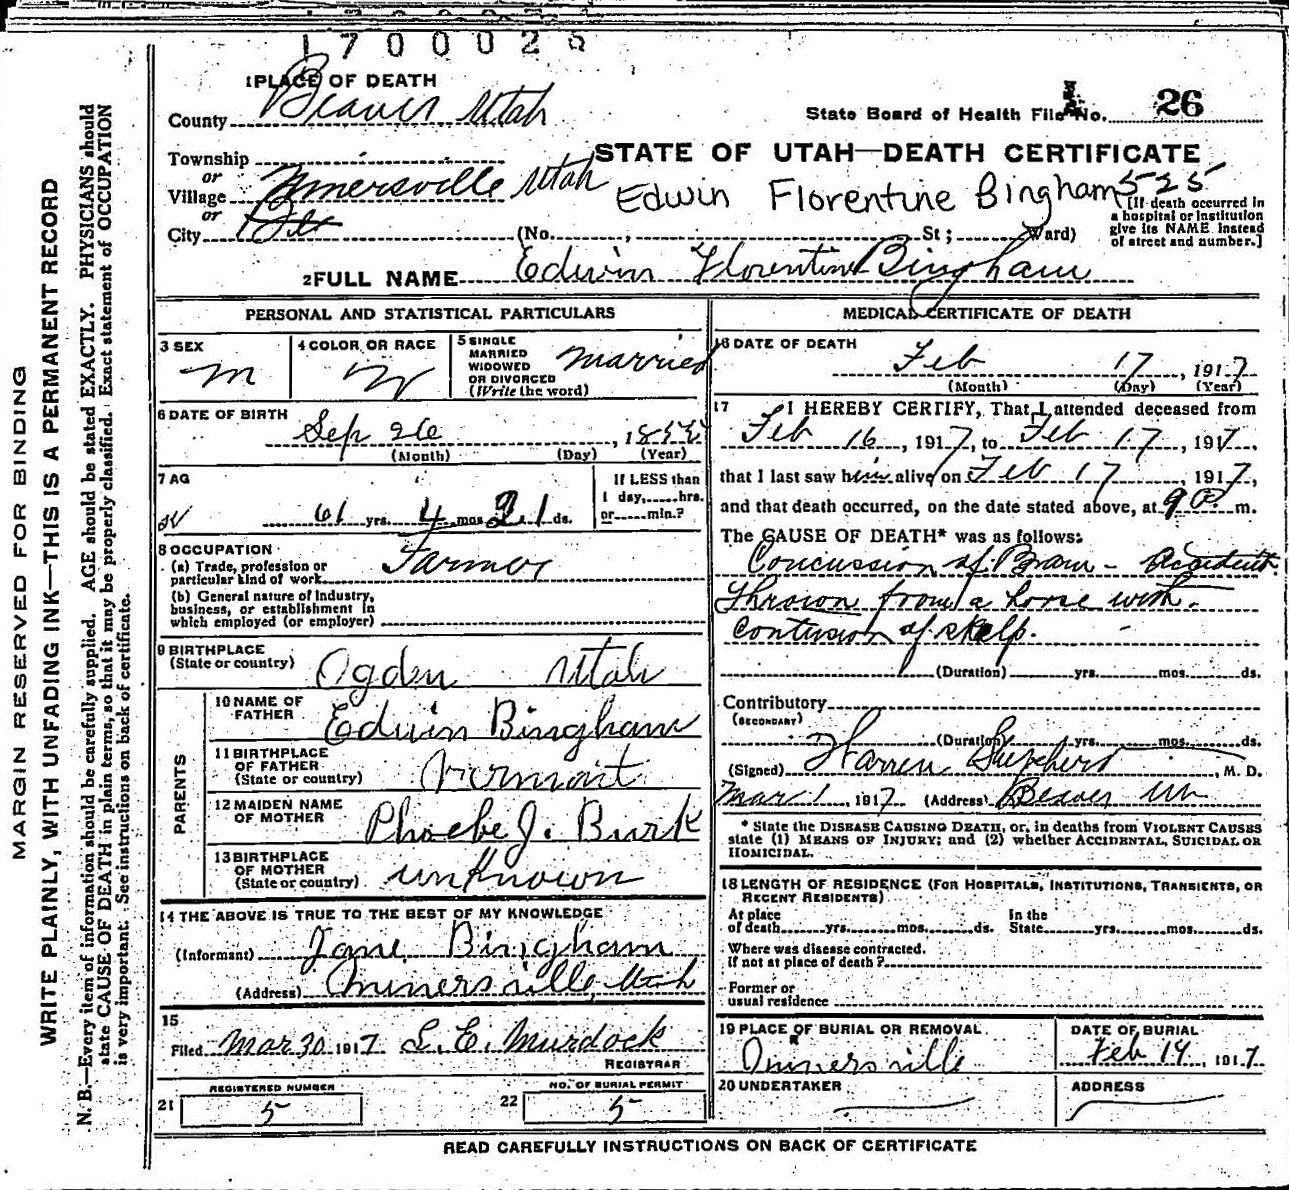 1700026
1 PLACE OF DEATH
County Beaver Utah
State Board of Health File No. 26
Township
or
Village Minersville Utah
or
City
STATE OF UTAH—DEATH CERTIFICATE
Edwin Florentine Bingham 525
[If death occurred in
a hospital or institution
give its NAME instead
of street and number.]
(No. , St; Ward)
2 FULL NAME Edwin Florentine Bingham
PERSONAL AND STATISTICAL PARTICULARS
3 SEX
M
4 COLOR OR RACE
W
5 SINGLE
MARRIED
WIDOWED
OR DIVORCED
(Write the word)
Married
6 DATE OF BIRTH
Sep 26, 1855
(Month) (Day) (Year)
7 AG
61 yrs. 4 mos 21 ds.
If LESS than
1 day, hrs.
or min.?
8 OCCUPATION
(a) Trade, profession or
particular kind of work Farmer
(b) General nature of Industry,
business, or establishment in
which employed (or employer)
9 BIRTHPLACE
(State or country) Ogden Utah
PARENTS
10 NAME OF
FATHER Edwin Bingham
11 BIRTHPLACE
OF FATHER
(State or country) Vermont
12 MAIDEN NAME
OF MOTHER Phoebe J. Burk
13 BIRTHPLACE
OF MOTHER
(State or country) unknown
14 THE ABOVE IS TRUE TO THE BEST OF MY KNOWLEDGE
(Informant) Jane Bingham
(Address) Minersville, Utah
15
Filed Mar 30 1917 L. E. Murdock
REGISTRAR
REGISTERED NUMBER
21 5
NO. OF BURIAL PERMIT
22 5
MEDICAL CERTIFICATE OF DEATH
16 DATE OF DEATH
Feb 17, 1917
(Month) (Day) (Year)
17 I HEREBY CERTIFY, That I attended deceased from
Feb 16, 1917, to Feb 17, 1917,
that I last saw him alive on Feb 17, 1917,
and that death occurred, on the date stated above, at 9 P. m.
The CAUSE OF DEATH* was as follows:
Concussion of Brain - Accident.
Thrown from a horse with
contusion of skalp.
(Duration) yrs. mos. ds.
Contributory
(SECONDARY)
(Duration) yrs. mos. ds.
(Signed) Warren Shepherd, M. D.
Mar 1, 1917 (Address) Beaver Ut
* State the DISEASE CAUSING DEATH, or, in deaths from VIOLENT CAUSES
state (1) MEANS OF INJURY; and (2) whether ACCIDENTAL, SUICIDAL OR
HOMICIDAL.
18 LENGTH OF RESIDENCE (FOR HOSPITALS, INSTITUTIONS, TRANSIENTS, OR
RECENT RESIDENTS)
At place
of death yrs. mos. ds.
In the
State yrs. mos. ds.
Where was disease contracted.
if not at place of death?
Former or
usual residence
19 PLACE OF BURIAL OR REMOVAL
Minersville
DATE OF BURIAL
Feb 19, 1917
20 UNDERTAKER
ADDRESS
READ CAREFULLY INSTRUCTIONS ON BACK OF CERTIFICATE
MARGIN RESERVED FOR BINDING
WRITE PLAINLY, WITH UNFADING INK—THIS IS A PERMANENT RECORD
N. B.—Every item of information should be carefully supplied. AGE should be stated EXACTLY. PHYSICIANS should
state CAUSE OF DEATH in plain terms, so that it may be properly classified. Exact statement of OCCUPATION
is very important. See instructions on back of certificate.